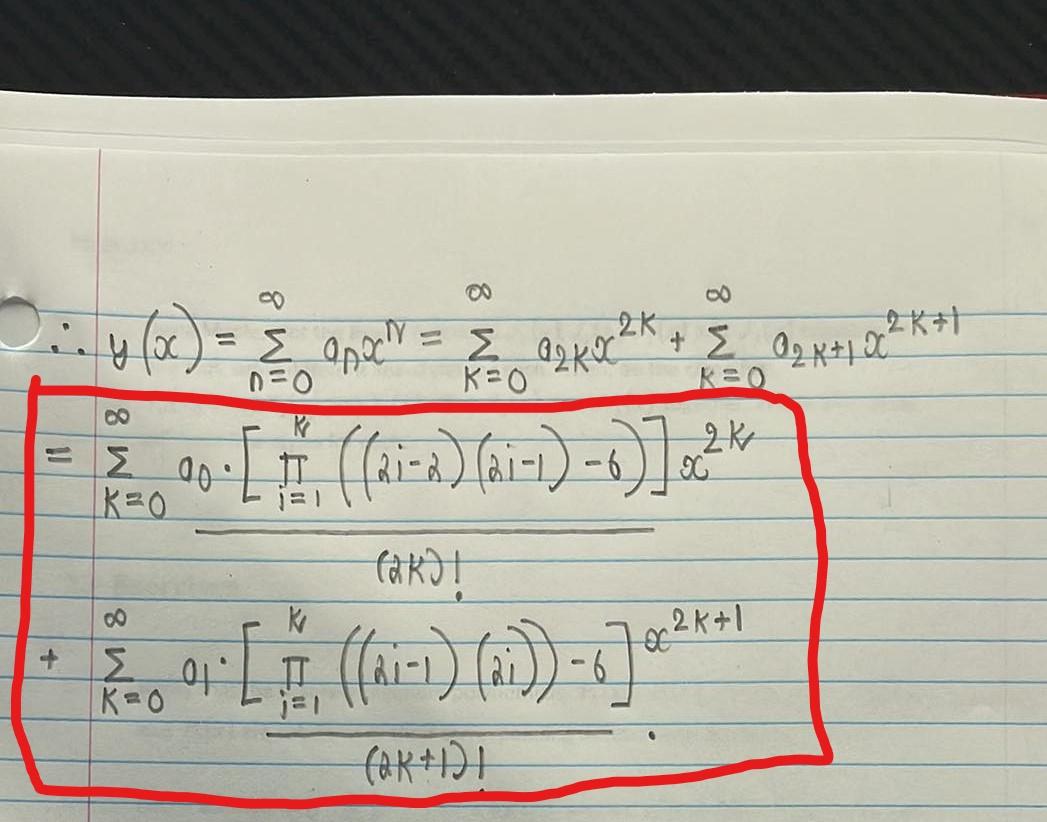 ∴ y(x) = ∑_{n=0}^{∞} a_n x^n = ∑_{k=0}^{∞} a_{2k} x^{2k} + ∑_{k=0}^{∞} a_{2k+1} x^{2k+1}
= ∑_{k=0}^{∞} a_0 · [ ∏_{i=1}^{k} ((2i-2)(2i-1)-6) ] x^{2k} / (2k)!
+ ∑_{k=0}^{∞} a_1 · [ ∏_{i=1}^{k} ((2i-1)(2i))-6 ] x^{2k+1} / (2k+1)! .